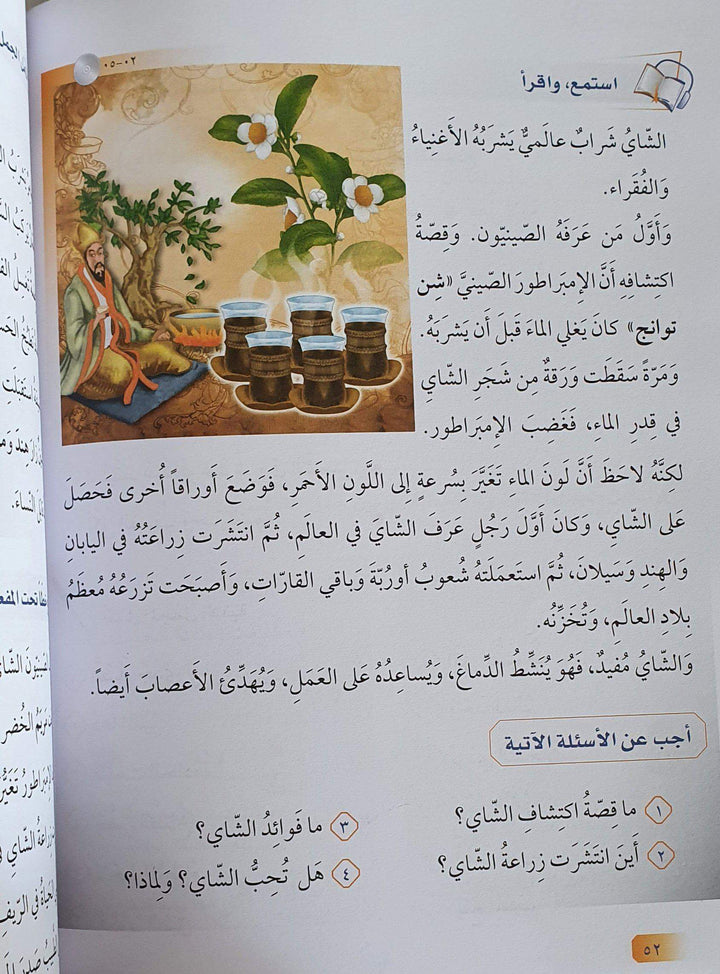 ٠٥-٠٢
استمع، واقرأ
الشّايُ شَرابٌ عالَميٌّ يَشرَبُهُ الأَغنِياءُ
وَالفُقَراء.
وَأَوَّلُ مَن عَرَفَهُ الصّينيّون. وَقِصّةُ
اكتِشافِهِ أَنَّ الإمبَراطورَ الصّينيَّ «شِن
توانج» كانَ يَغلي الماءَ قَبلَ أَن يَشرَبَهُ.
وَمَرّةً سَقَطَت وَرَقةٌ مِن شَجَرِ الشّاي
في قِدرِ الماءِ، فَغَضِبَ الإمبَراطور.
لكِنَّهُ لاحَظَ أَنَّ لَونَ الماءِ تَغَيَّرَ بِسُرعةٍ إلى اللَّونِ الأَحمَرِ، فَوَضَعَ أَوراقاً أُخرى فَحَصَلَ
عَلى الشّايِ، وَكانَ أَوَّلَ رَجُلٍ عَرَفَ الشّايَ في العالَمِ، ثُمَّ انتَشَرَت زِراعَتُهُ في اليابانِ
وَالهِندِ وَسَيلانَ، ثُمَّ استَعمَلَتهُ شُعوبُ أوربّةَ وَباقي القارّاتِ، وَأَصبَحَت تَزرَعُهُ مُعظَمُ
بِلادِ العالَمِ، وَتُخَزِّنُه.
وَالشّايُ مُفيدٌ، فَهُوَ يُنَشِّطُ الدِّماغَ، وَيُساعِدُهُ عَلى العَمَلِ، وَيُهَدِّئُ الأَعصابَ أَيضاً.
أجب عن الأسئلة الآتية
١ ما قِصّةُ اكتِشافِ الشّاي؟
٢ أَينَ انتَشَرَت زِراعةُ الشّاي؟
٣ ما فَوائِدُ الشّاي؟
٤ هَل تُحِبُّ الشّاي؟ وَلِماذا؟
٥٢